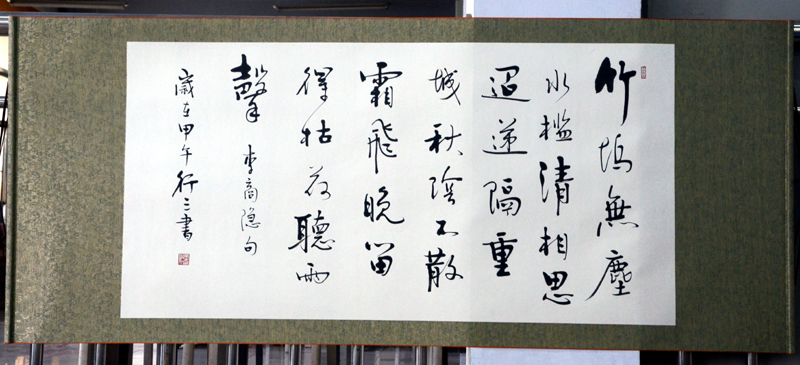 竹塢無塵
水檻清相思
迢遞隔重
城秋陰不散
霜飛晚留
得枯荷聽雨
聲 李商隐句
歲在甲午行三書